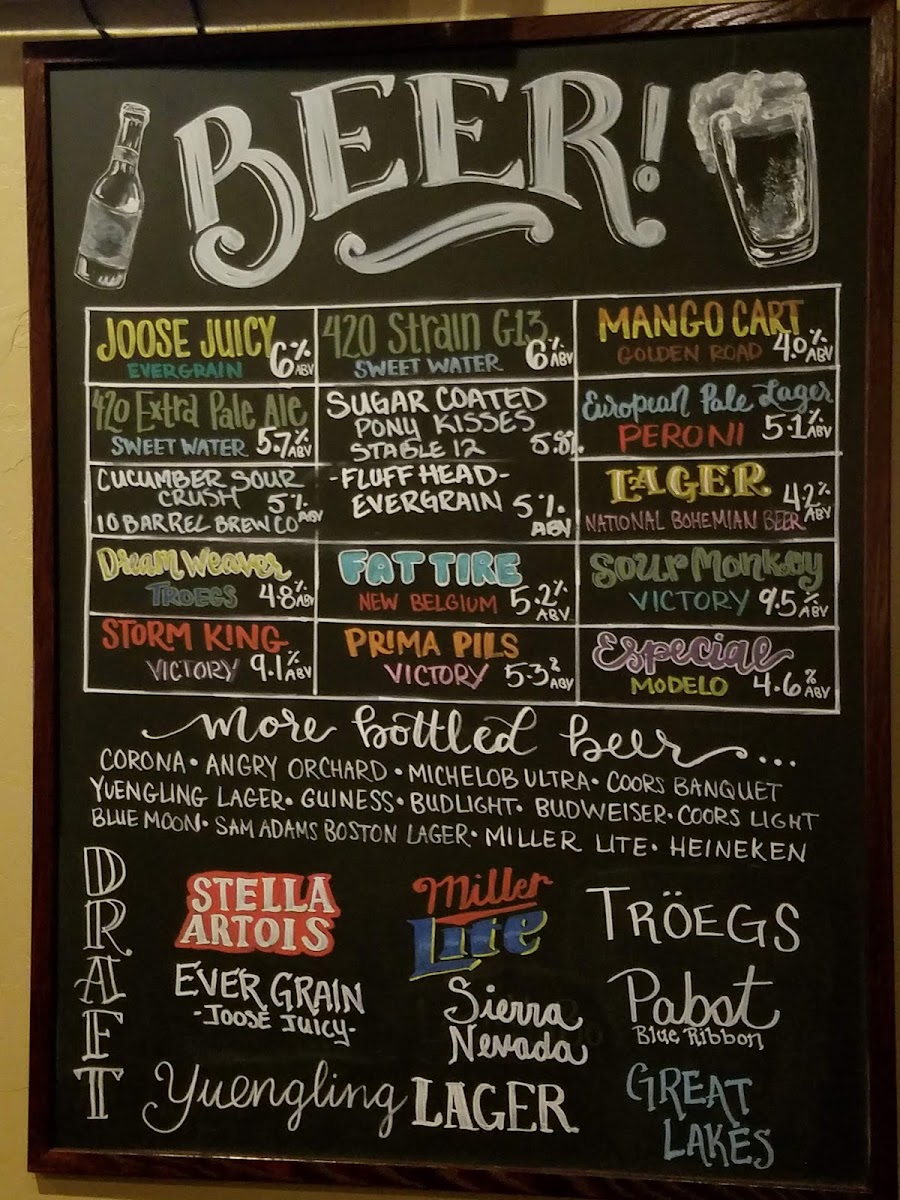 BEER!
JOOSE JUICY
EVERGRAIN 6% ABV
420 Strain G13
SWEET WATER 6% ABV
MANGO CART
GOLDEN ROAD 4.0% ABV
420 Extra Pale Ale
SWEET WATER 5.7% ABV
SUGAR COATED
PONY KISSES
STABLE 12 5.8%
European Pale Lager
PERONI 5.1% ABV
CUCUMBER SOUR
CRUSH 5% ABV
10 BARREL BREW CO
-FLUFF HEAD-
EVERGRAIN 5% ABV
LAGER 4.2% ABV
NATIONAL BOHEMIAN BEER
Dream Weaver
TROEGS 4.8% ABV
FAT TIRE
NEW BELGIUM 5.2% ABV
Sour Monkey
VICTORY 9.5% ABV
STORM KING
VICTORY 9.1% ABV
PRIMA PILS
VICTORY 5.3% ABV
Especial
MODELO 4.6% ABV
more bottled beer...
CORONA • ANGRY ORCHARD • MICHELOB ULTRA • COORS BANQUET
YUENGLING LAGER • GUINESS • BUDLIGHT • BUDWEISER • COORS LIGHT
BLUE MOON • SAM ADAMS BOSTON LAGER • MILLER LITE • HEINEKEN
DRAFT
STELLA
ARTOIS
Miller
Lite
TRÖEGS
EVER GRAIN
-JOOSE JUICY-
Sierra
Nevada
Pabst
Blue Ribbon
Yuengling LAGER
GREAT
LAKES